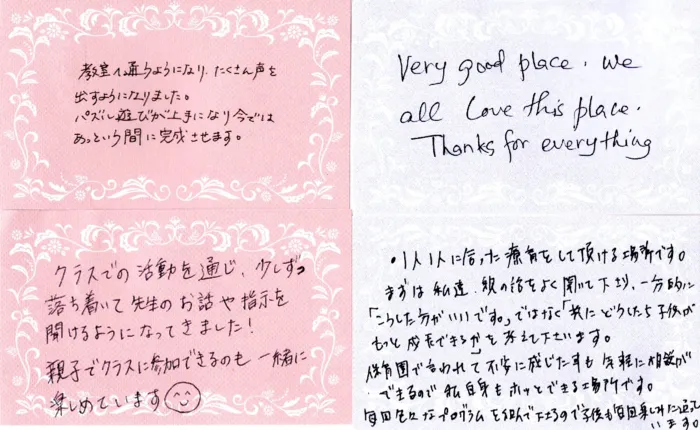 教室へ通うようになり、たくさん声を
出すようになりました。
パズル遊びが上手になり今では
あっという間に完成させます。
Very good place. we
all Love this place.
Thanks for everything
クラスでの活動を通じ、少しずつ
落ち着いて先生のお話や指示を
聞けるようになってきました!
親子でクラスに参加できるのも一緒に
楽しめています
・1人1人に合った療育をして頂ける場所です。
まずは私達、親の話をよく聞いて下さり、一方的に
「こうした方がいいです。」ではなく「共にどうしたら子供が
もっと成長できるか」を考えて下さいます。
保育園で言われて不安に感じた事も気軽に相談が
できるので私自身もホッとできる場所です。
毎回色々なプログラムを組んで下さるので子供も毎回楽しみに通って
います。